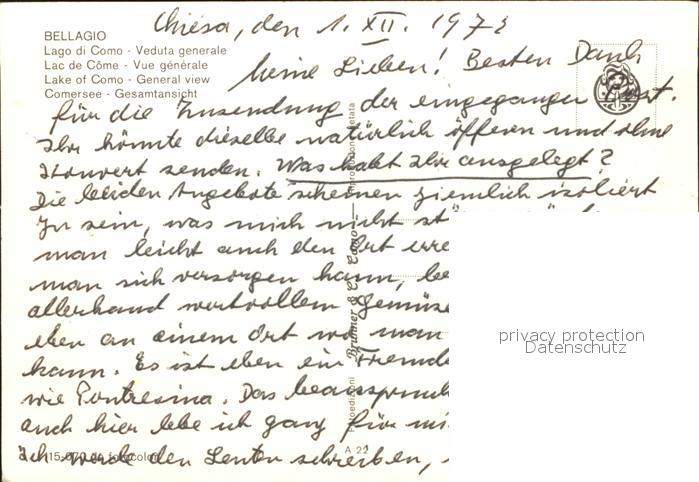 BELLAGIO
Lago di Como - Veduta generale
Lac de Côme - Vue générale
Lake of Como - General view
Comersee - Gesamtansicht
Chiesa, den 1. XII. 1973
Meine Lieben! Besten Dank
für die Zusendung der eingegangen Post.
Ihr könnte dieselbe natürlich öffnen und ohne
Kouvert senden. Was habt Ihr ausgelegt?
Die beiden Angebote scheinen ziemlich isoliert
zu sein, was mich nicht
man leicht auch den Ort
man sich versorgen kann,
allerhand wertvollem Gemüse
eben an einem Ort wo man
kann. Es ist eben ein
wie Pontresina. Das
auch hier lebe ich ganz für
Ich werde den Leuten schreiben,
Fotoedizioni Brunner & C. - Como
A 22
privacy protection
Datenschutz